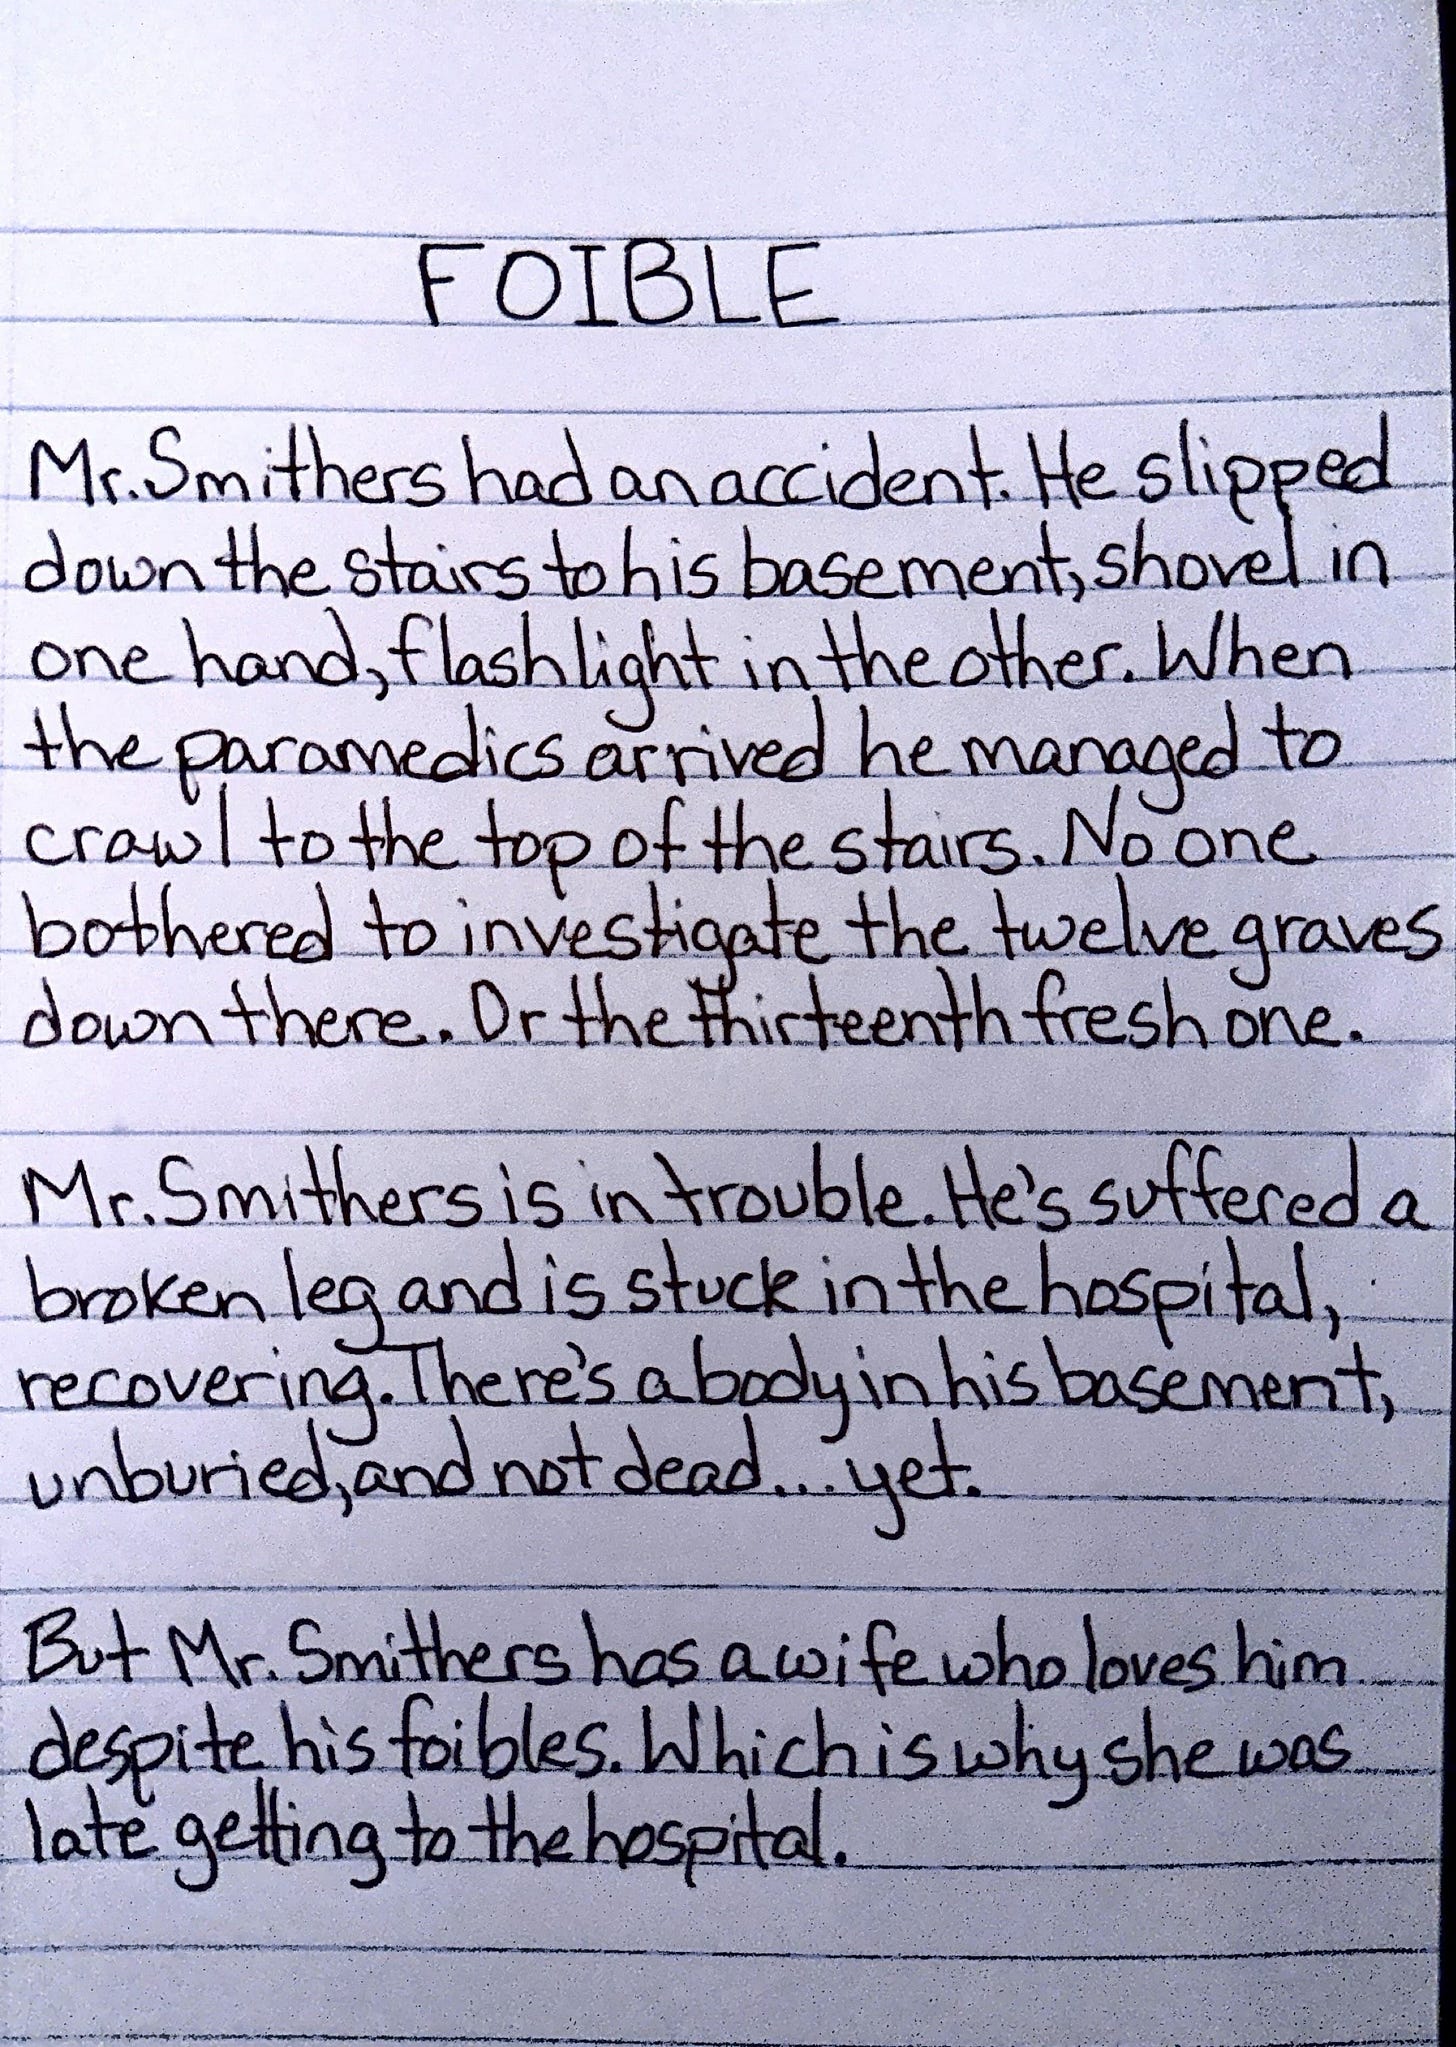 FOIBLE
Mr. Smithers had an accident. He slipped
down the stairs to his basement, shovel in
one hand, flashlight in the other. When
the paramedics arrived he managed to
crawl to the top of the stairs. No one
bothered to investigate the twelve graves
down there. Or the thirteenth fresh one.
Mr. Smithers is in trouble. He's suffered a
broken leg and is stuck in the hospital,
recovering. There's a body in his basement,
unburied, and not dead... yet.
But Mr. Smithers has a wife who loves him
despite his foibles. Which is why she was
late getting to the hospital.